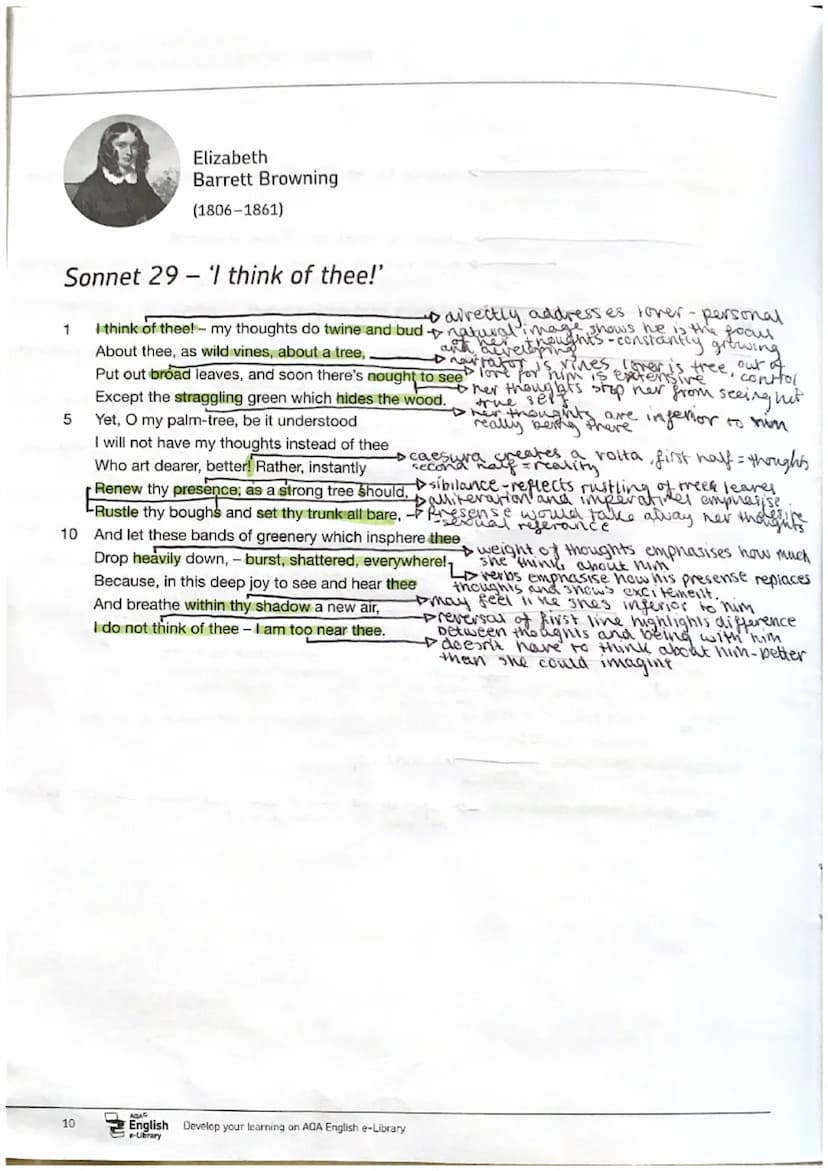 Elizabeth
Barrett Browning
(1806–1861)
Sonnet 29 – ‘I think of thee!’
1 I think of thee! – my thoughts do twine and bud
About thee, as wild vines, about a tree,
Put out broad leaves, and soon there's nought to see
Except the straggling green which hides the wood.
5 Yet, O my palm-tree, be it understood
I will not have my thoughts instead of thee
Who art dearer, better! Rather, instantly
Renew thy presence; as a strong tree should,
Rustle thy boughs and set thy trunk all bare,
10 And let these bands of greenery which insphere thee
Drop heavily down, – burst, shattered, everywhere!
Because, in this deep joy to see and hear thee
And breathe within thy shadow a new air,
I do not think of thee – I am too near thee.
directly addresses lover - personal
natural image shows he is the focus
of her thoughts - constantly growing
and developing
narrator is vines, lover is tree, out of control
love for him is extensive
her thoughts stop her from seeing his
true self
her thoughts are inferior to him
really being there
caesura creates a volta, first half = thoughts
second half = reality
sibilance - reflects rustling of tree leaves
alliteration and imperatives emphasise desire
presense would take away her thoughts
- sexual referance
weight of thoughts emphasises how much
she thinks about him
verbs emphasise how his presense replaces
thoughts and shows excitement.
may feel like shes inferior to him
reversal of first line highlights difference
between thoughts and being with him
doesn't have to think about him - better
than she could imagine
10
AQA
English
e-Library
Develop your learning on AQA English e-Library